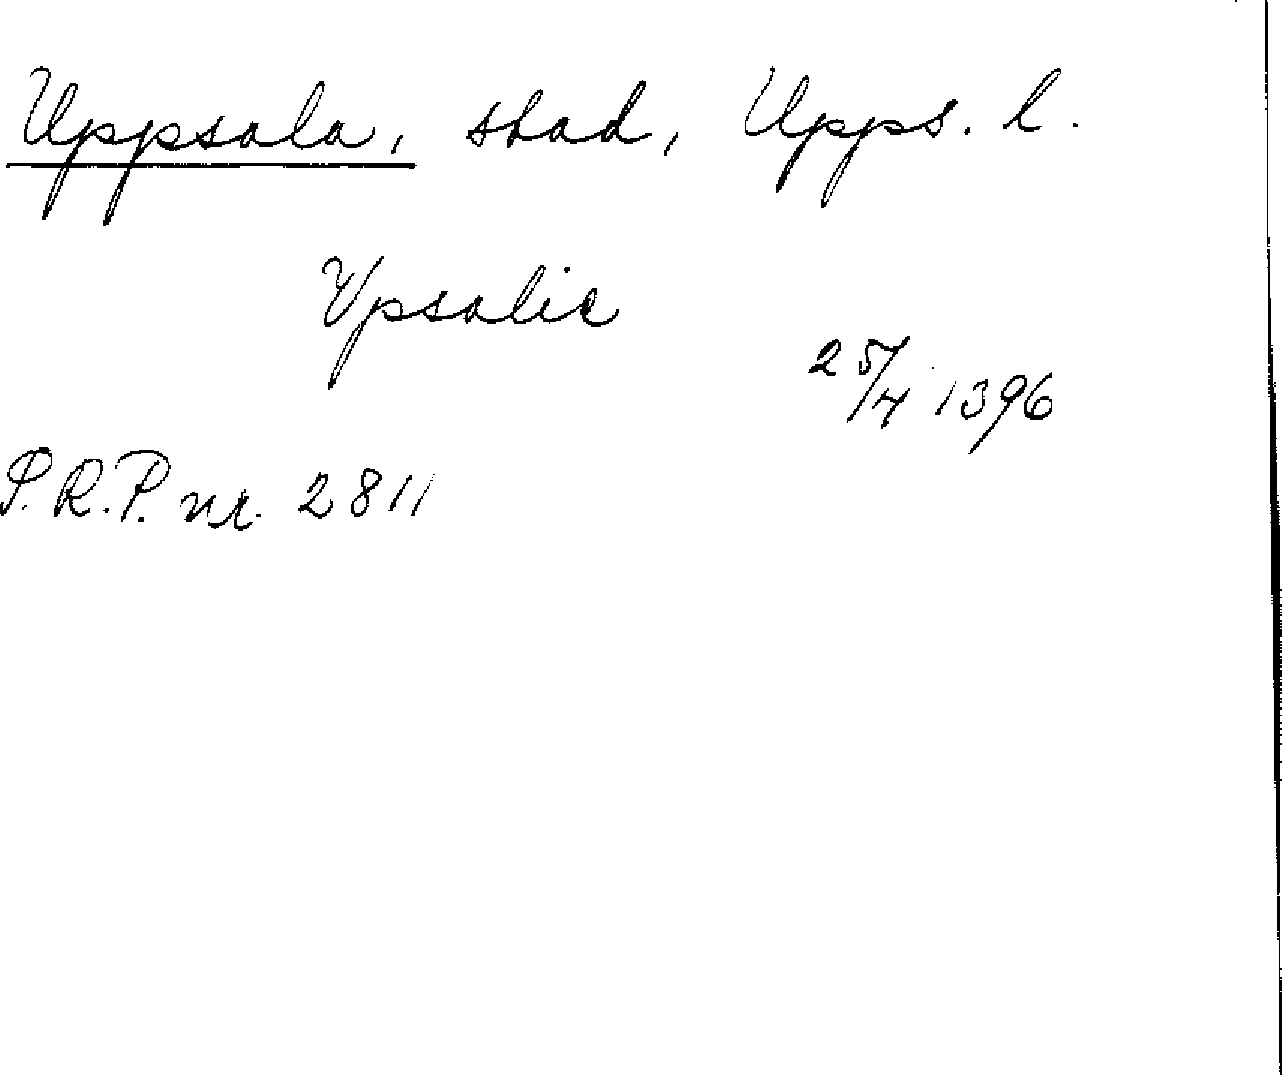 Uppsala, stad, Upps. l.
Vpsalie
25/4 1396
S.R.P. nr. 2811